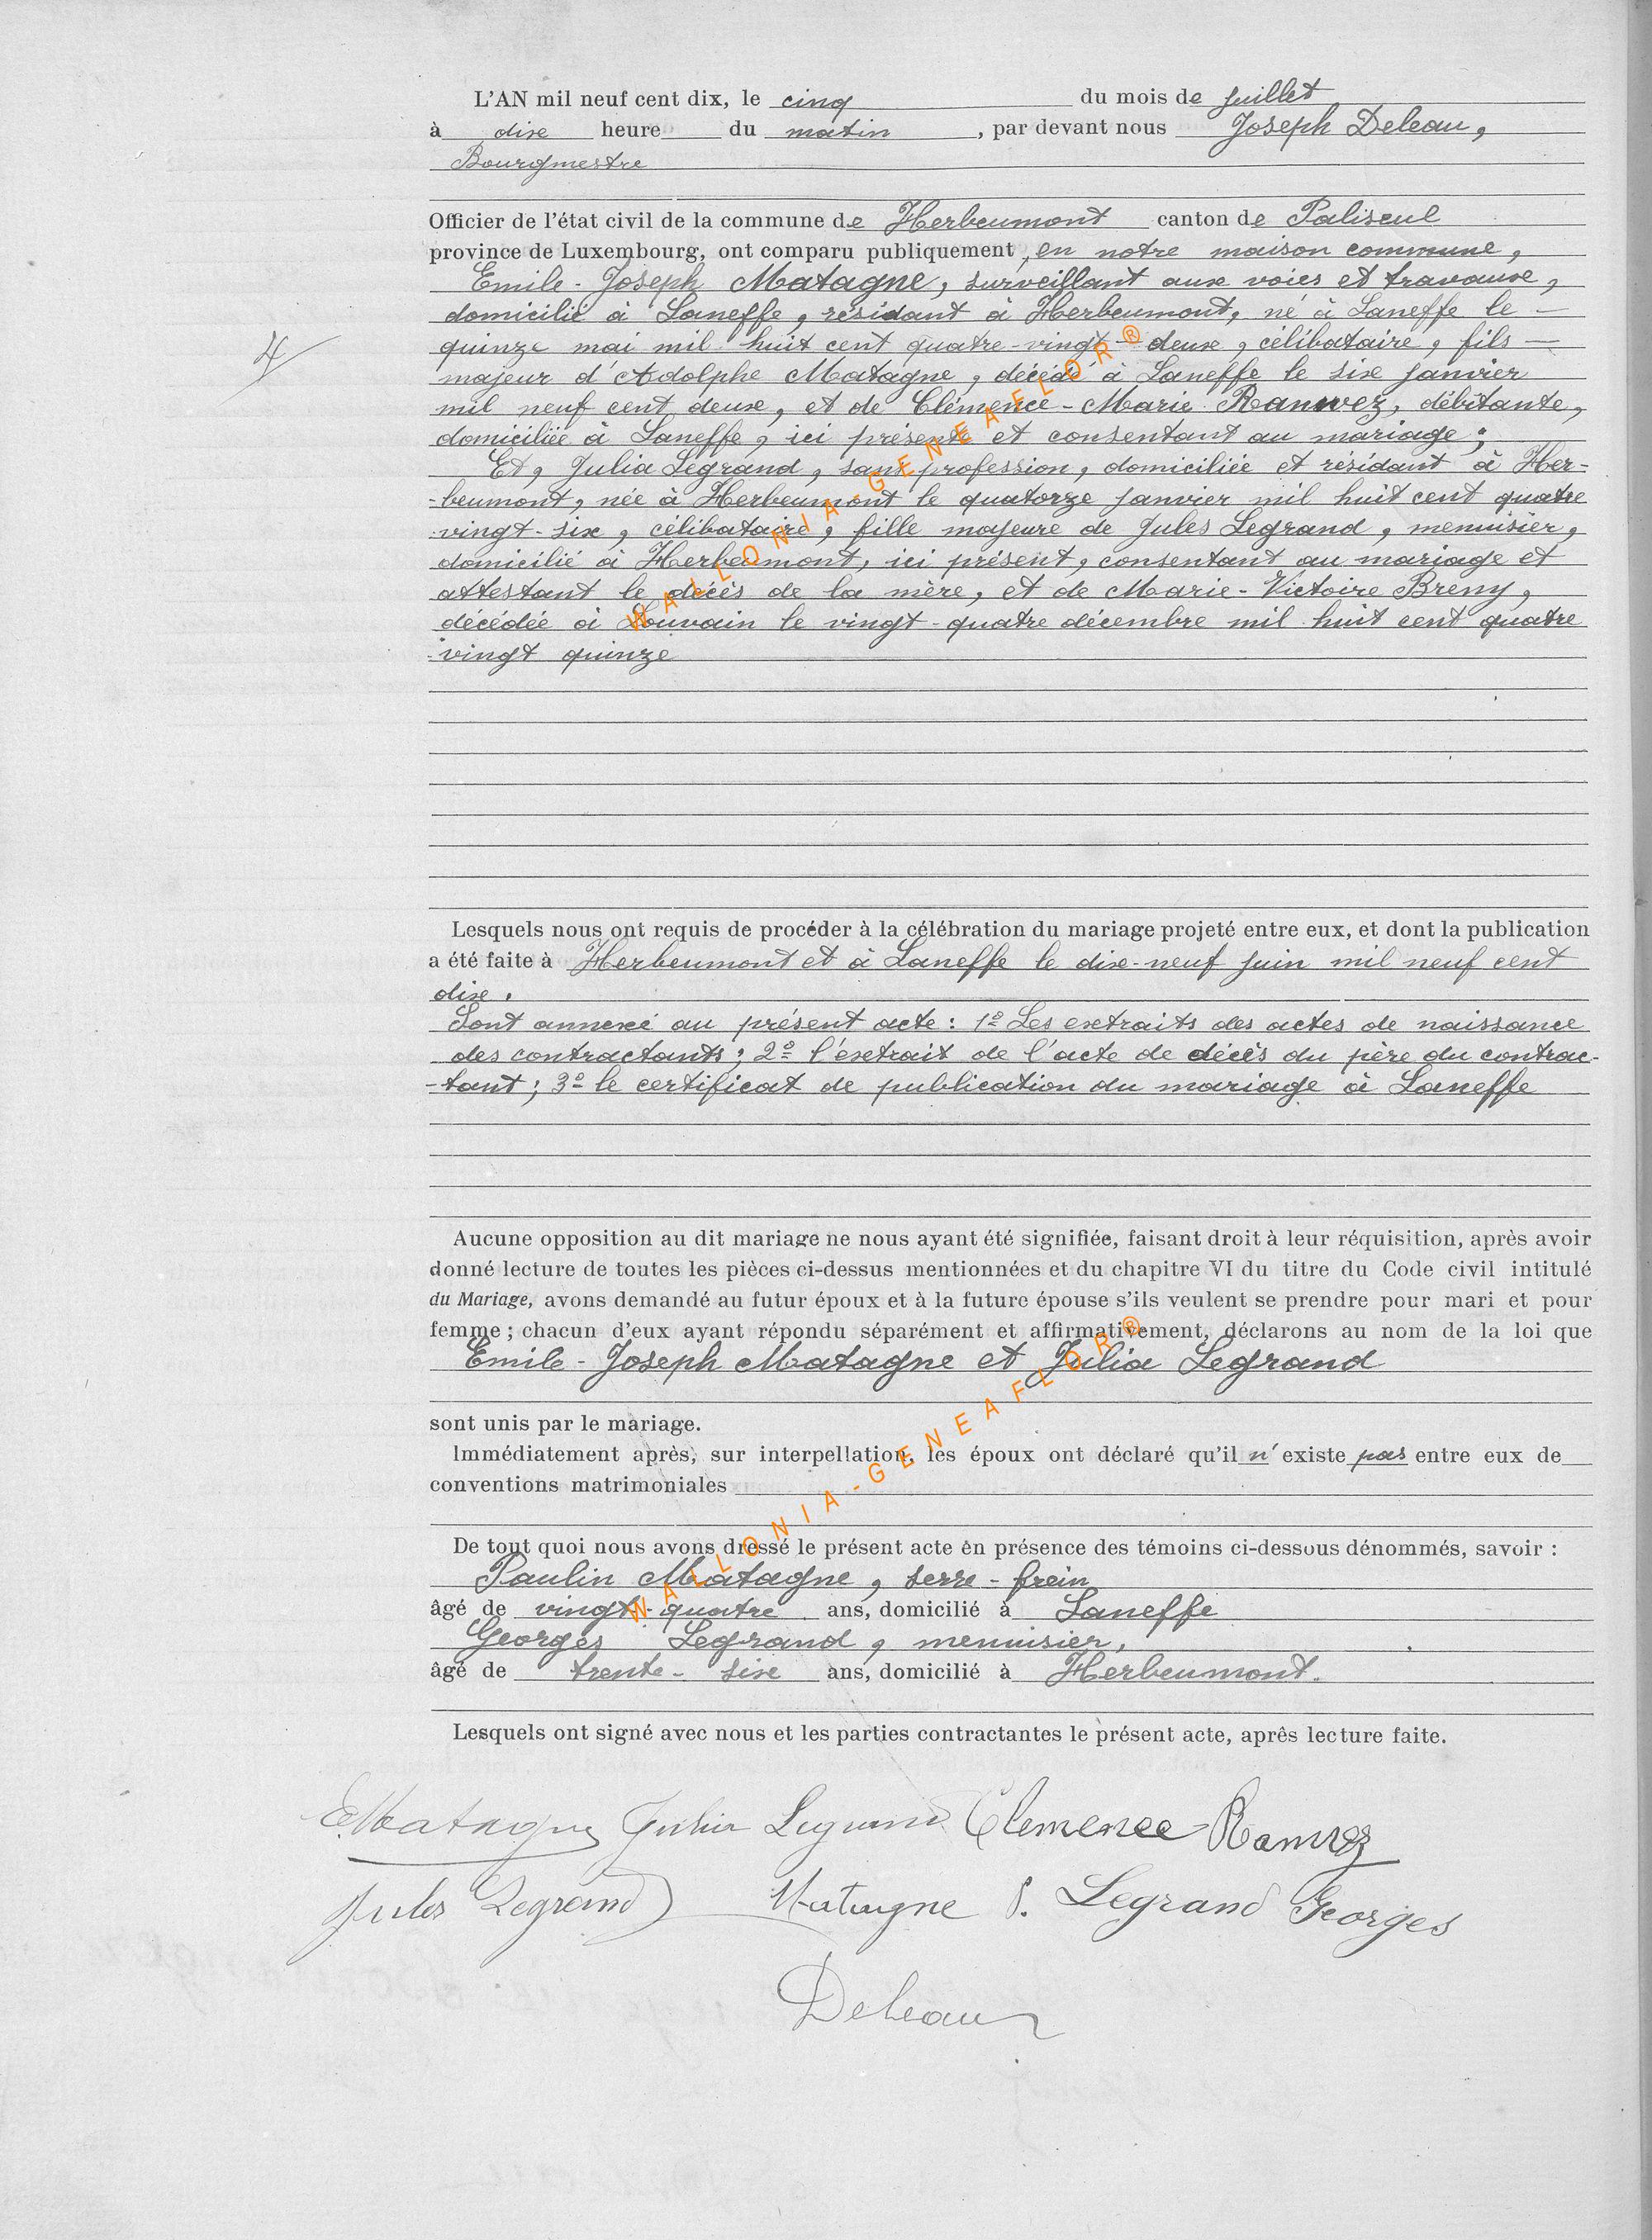 L'AN mil neuf cent dix, le cinq du mois de juillet
à dix heure du matin, par devant nous Joseph Deleau,
Bourgmestre
Officier de l'état civil de la commune de Herbeumont canton de Paliseul
province de Luxembourg, ont comparu publiquement, en notre maison commune,
Emile-Joseph Matagne, surveillant aux voies et travaux,
domicilié à Laneffe, résidant à Herbeumont, né à Laneffe le —
4
quinze mai mil huit cent quatre-vingt-deux, célibataire, fils —
majeur d'Adolphe Matagne, décédé à Laneffe le six janvier
mil neuf cent deux, et de Clémence-Marie Ranwez, débitante,
domiciliée à Laneffe, ici présente et consentant au mariage;
Et, Julia Legrand, sans profession, domiciliée et résidant à Her-
-beumont, née à Herbeumont le quatorze janvier mil huit cent quatre
-vingt-six, célibataire, fille majeure de Jules Legrand, menuisier,
domicilié à Herbeumont, ici présent, consentant au mariage et
attestant le décès de la mère, et de Marie-Victoire Breny,
décédée à Louvain le vingt-quatre décembre mil huit cent quatre
-vingt quinze
WALLONIA-GENEAFLOR®
Lesquels nous ont requis de procéder à la célébration du mariage projeté entre eux, et dont la publication
a été faite à Herbeumont et à Laneffe le dix-neuf juin mil neuf cent
dix.
Sont annexé au présent acte: 1° Les extraits des actes de naissance
des contractants; 2° l'extrait de l'acte de décès du père du contrac-
-tant; 3° le certificat de publication du mariage à Laneffe
Aucune opposition au dit mariage ne nous ayant été signifiée, faisant droit à leur réquisition, après avoir
donné lecture de toutes les pièces ci-dessus mentionnées et du chapitre VI du titre du Code civil intitulé
du Mariage, avons demandé au futur époux et à la future épouse s'ils veulent se prendre pour mari et pour
femme; chacun d'eux ayant répondu séparément et affirmativement, déclarons au nom de la loi que
Emile-Joseph Matagne et Julia Legrand
sont unis par le mariage.
Immédiatement après, sur interpellation, les époux ont déclaré qu'il n'existe pas entre eux de
conventions matrimoniales
WALLONIA-GENEAFLOR®
De tout quoi nous avons dressé le présent acte en présence des témoins ci-dessous dénommés, savoir :
Paulin Matagne, serre-frein
âgé de vingt-quatre ans, domicilié à Laneffe
Georges Legrand, menuisier,
âgé de trente-six ans, domicilié à Herbeumont.
Lesquels ont signé avec nous et les parties contractantes le présent acte, après lecture faite.
E Matagne Julia Legrand Clemence Ranwez
Jules Legrand Matagne P. Legrand Georges
Deleau